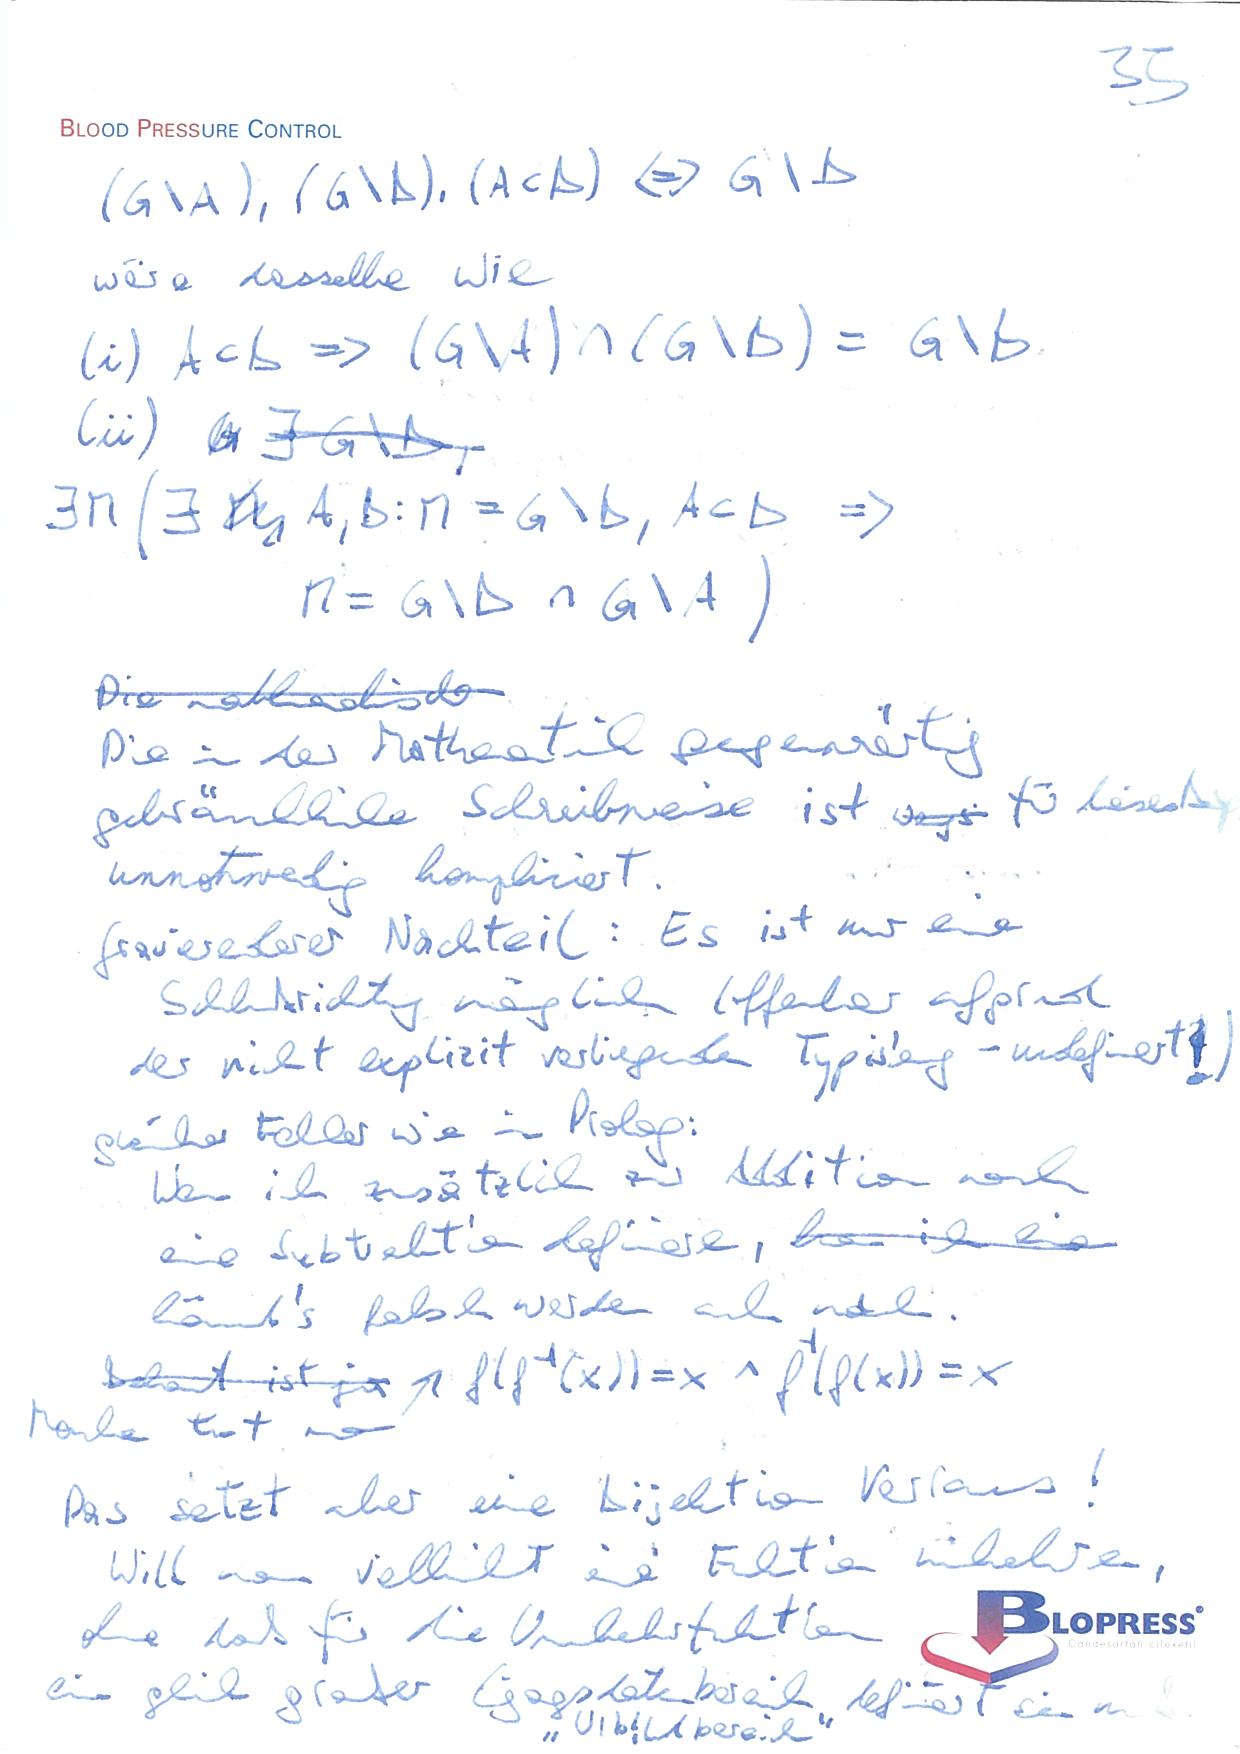 35
BLOOD PRESSURE CONTROL
(G\A), (G\B), (A⊂B) ⇔ G\B
wäre dasselbe wie
(i) A⊂B => (G\A)∩(G\B) = G\B
(ii) ∃ G\B,
∃M(∃ A,B: M = G\B, A⊂B =>
M = G\B ∩ G\A)
Die methodische
Die in der Mathematik gegenwärtig
gebräuchliche Schreibweise ist für
unnotwendig kompliziert.
gravierenderer Nachteil: Es ist nur eine
Schlußrichtung möglich (offenbar aufgrund
der nicht explizit vorliegenden Typisierung - undefiniert!)
gleicher Fehler wie in Prolog:
Wenn ich zusätzlich zur Addition noch
eine Subtraktion definiere, kann ich eine
könnt's falsch werden auch noch.
Bekannt ist ja ↗ f(f⁻¹(x))=x ∧ f⁻¹(f(x))=x
Manche tut man
Das setzt aber eine Bijektion voraus!
Will man vielleicht eine Funktion umkehren,
ohne daß für die Umkehrfunktion
ein gleich großer Eingangsdatenbereich definiert sein muß.
„Urbildbereich"
BLOPRESS®
Candesartan cilexetil